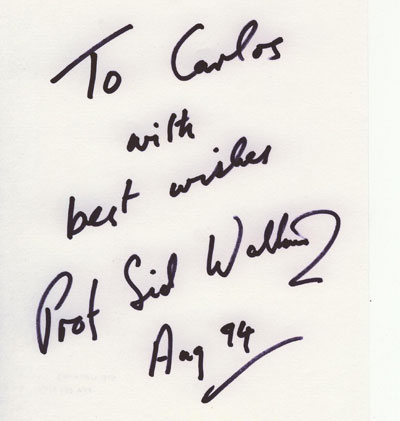 To Carlos
with
best wishes
Prof Sid Watkins
Aug 94